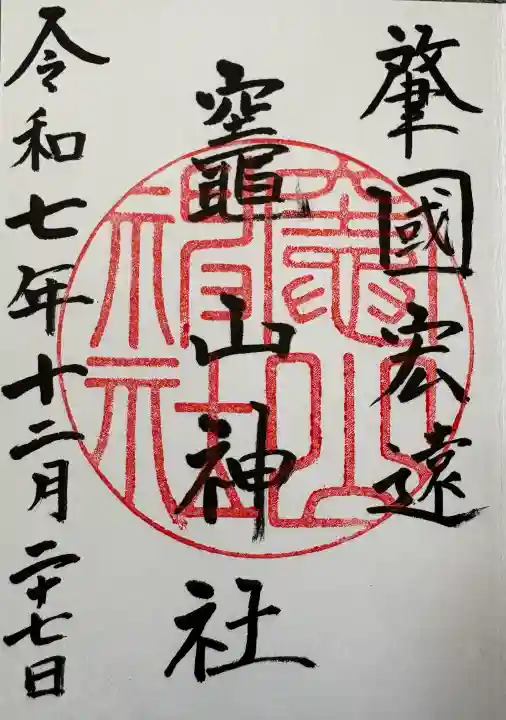 肇國宏遠
竈山神社
令和七年十二月二十七日
竈山神社